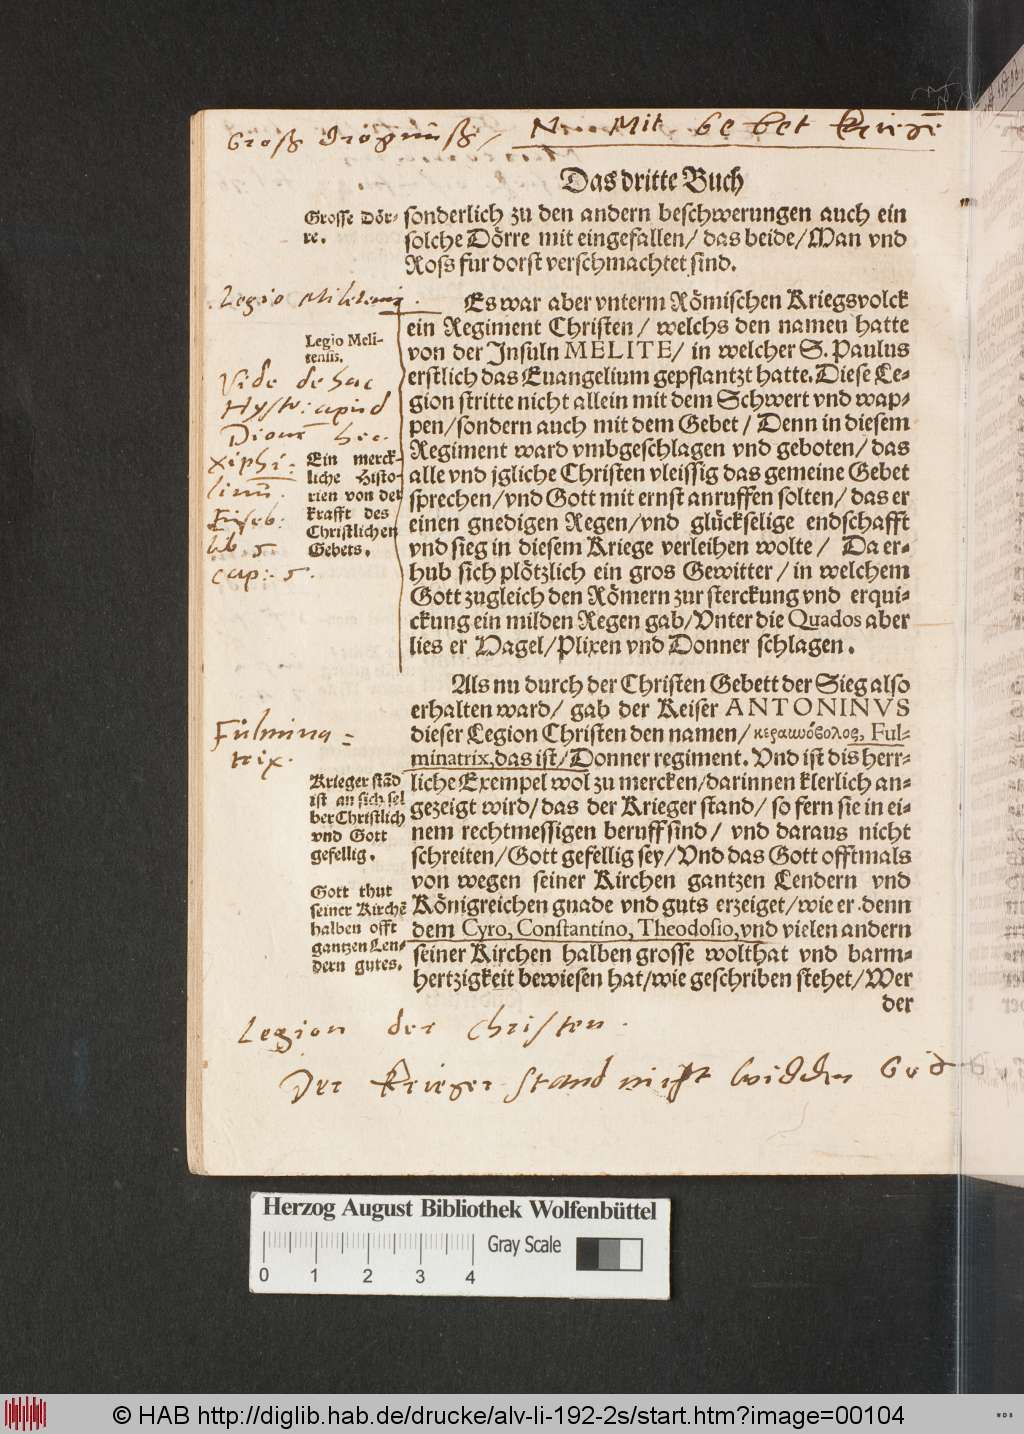 Mit gebet
Das dritte Buch
Grosse Dör-
re.
sonderlich zu den andern beschwerungen auch ein
solche Dörre mit eingefallen/ das beide/ Man vnd
Ross fur dorst verschmachtet sind.
Legio
Es war aber vnterm Römischen Kriegsvolck
ein Regiment Christen/ welchs den namen hatte
von der Insuln MELITE/ in welcher S. Paulus
erstlich das Euangelium gepflantzt hatte. Diese Le-
gion stritte nicht allein mit dem Schwert vnd wap-
pen/ sondern auch mit dem Gebet/ Denn in diesem
Regiment ward vmbgeschlagen vnd geboten/ das
alle vnd jgliche Christen vleissig das gemeine Gebet
sprechen/ vnd Gott mit ernst anruffen solten/ das er
einen gnedigen Regen/ vnd glückselige endschafft
vnd sieg in diesem Kriege verleihen wolte/ Da er-
hub sich plötzlich ein gros Gewitter/ in welchem
Gott zugleich den Römern zur sterckung vnd erqui-
ckung ein milden Regen gab/ Vnter die Quados aber
lies er Hagel/ Plixen vnd Donner schlagen.
Legio Meli-
tensis.
Vide de hac
Hystor: apud
Xiphi=
linū.
Euseb:
lib 5
cap: 5.
Ein merck-
liche Histo-
rien von der
krafft des
Christlichen
Gebets.
Als nu durch der Christen Gebett der Sieg also
erhalten ward/ gab der Keiser ANTONINVS
dieser Legion Christen den namen/ κεραυνόβολος, Ful-
minatrix, das ist/ Donner regiment. Vnd ist dis herr-
liche Exempel wol zu mercken/ darinnen klerlich an-
gezeigt wird/ das der Krieger stand/ so fern sie in ei-
nem rechtmessigen beruff sind/ vnd daraus nicht
schreiten/ Gott gefellig sey/ Vnd das Gott offtmals
von wegen seiner Kirchen gantzen Lendern vnd
Königreichen gnade vnd guts erzeiget/ wie er denn
dem Cyro, Constantino, Theodosio, vnd vielen andern
seiner Kirchen halben grosse wolthat vnd barm-
hertzigkeit bewiesen hat/ wie geschriben stehet/ Wer
der
Fulmina=
trix.
Krieger stād
ist an sich sel
ber Christlich
vnd Gott
gefellig.
Gott thut
seiner Kirchē
halben offt
gantzen Len-
dern gutes.
Legion der Christen.
Der Krieger stand nicht widder God
Herzog August Bibliothek Wolfenbüttel
Gray Scale
0 1 2 3 4
© HAB http://diglib.hab.de/drucke/alv-li-192-2s/start.htm?image=00104